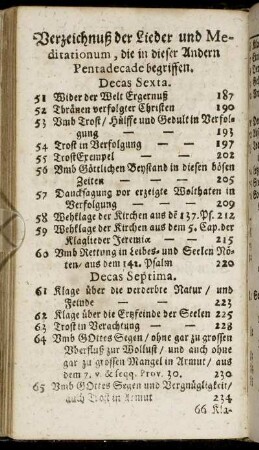 Verzeichnuß der Lieder und Me-
ditationum, die in dieser Andern
Pentadecade begriffen.
Decas Sexta.
51 Wider der Welt Ergernuß 187
52 Thränen verfolgter Christen 190
53 Vmb Trost / Hülffe und Gedult in Verfol-
gung — — 193
54 Trost in Verfolgung — 197
55 TrostExempel — — 202
56 Vmb Göttlichen Beystand in diesen bösen
Zeiten — — 205
57 Dancksagung vor erzeigte Wolthaten in
Verfolgung — — 209
58 Wehklage der Kirchen aus dē 137. Ps. 212
59 Wehklage der Kirchen aus dem 5. Cap. der
Klaglieder Jeremiæ — — 215
60 Vmb Rettung in Leibes- und Seelen Nö-
ten / aus dem 142. Psalm 220
Decas Septima.
61 Klage über die verderbte Natur / und
Feinde — — 223
62 Klage über die Ertzfeinde der Seelen 225
63 Trost in Verachtung — — 228
64 Vmb GOttes Segen / ohne gar zu grossen
Vberfluß zur Wollust / und auch ohne
gar zu grossen Mangel in Armut / aus
dem 7. v. & seqq. Prov. 30. 230
65 Vmb GOttes Segen und Vergnügligkeit /
auch Trost in Armut 234
66 Kla-